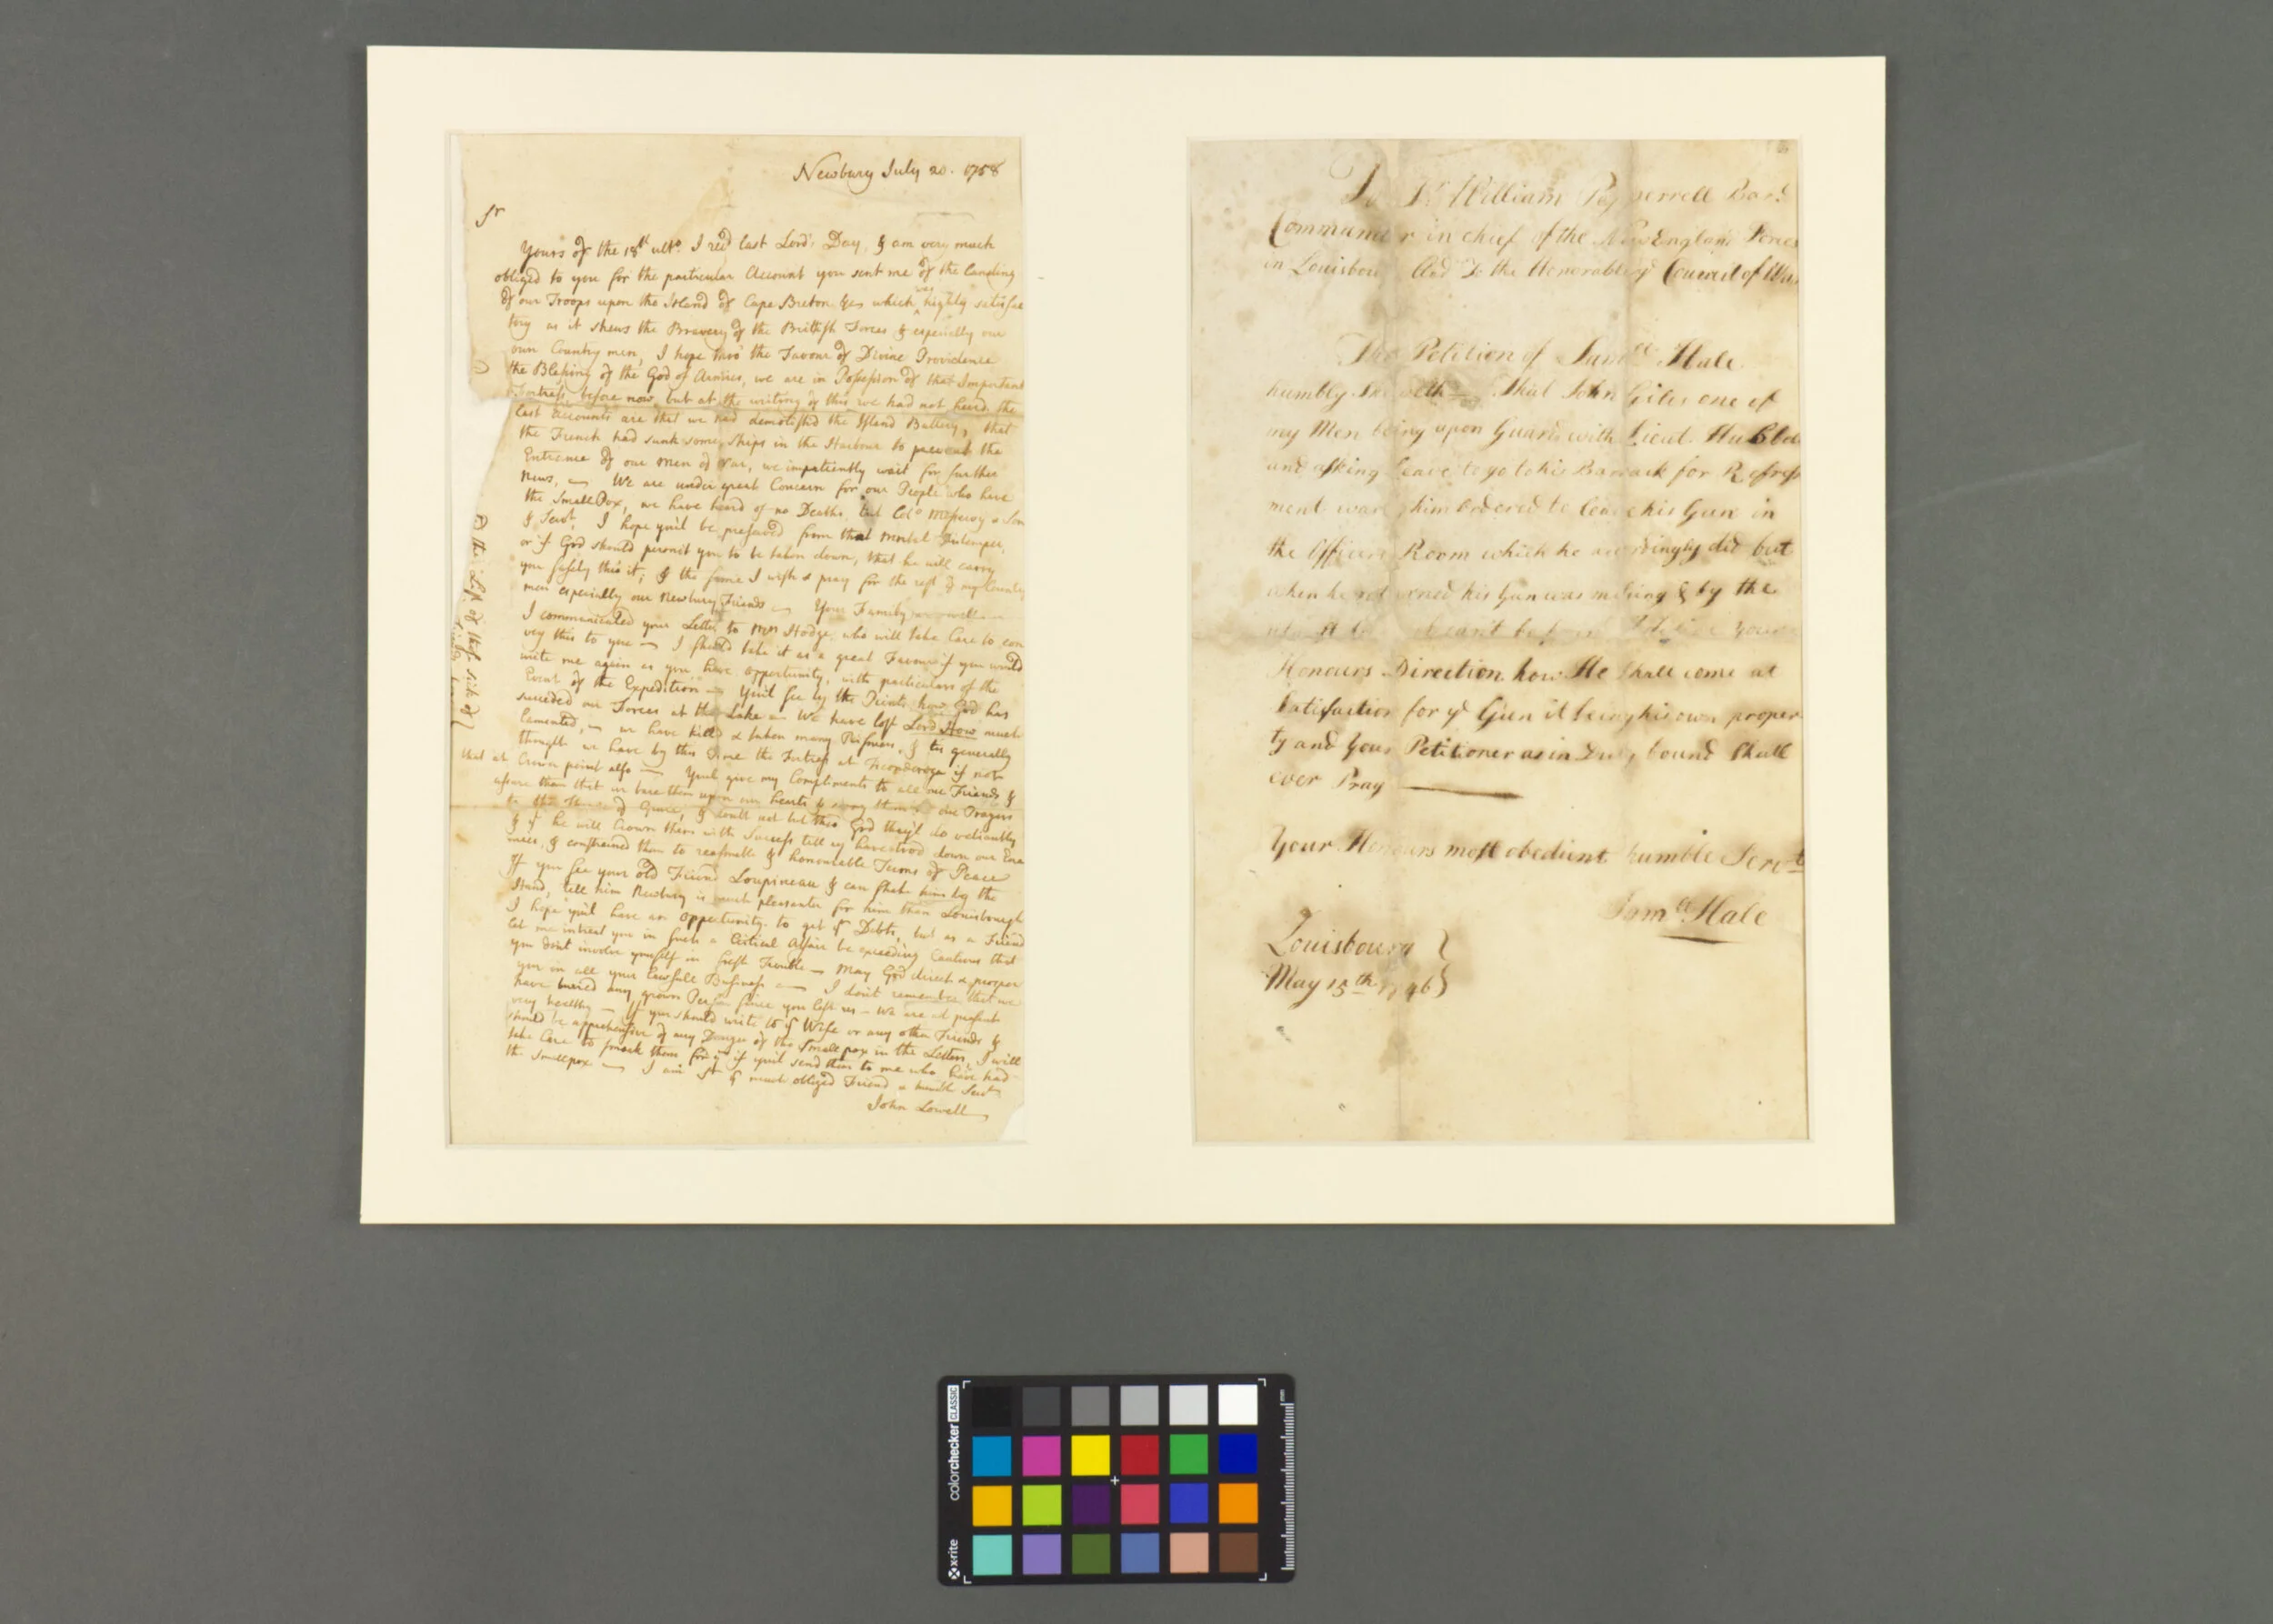 Newbury July 20. 1758
Sr
Yours of the 18th ulto. I recd last Lord's Day, & am very much
obliged to you for the particular Account you sent me of the Landing
of our Troops upon the Island of Cape Breton which was highly satisfac
tory as it shews the Bravery of the British Forces & especially our
own Country men, I hope thro' the Favour of Divine Providence
the Blessing of the God of Armies, we are in Possession of that Important
Fortress before now, but at the writing of this we had not heard. the
last accounts are that we had demolish'd the Island Battery, that
the French had sunk some Ships in the Harbour to prevent the
Entrance of our Men of War, we impatiently wait for further
News, — We are under great Concern for our People who have
the Small Pox, we have heard of no Deaths but Colo Meservy & Son
& Servt. I hope you'l be preserved from that mortal Distemper,
or if God should permit you to be taken down, that he will carry
you safely thro' it; & the same I wish & pray for the rest of my Country
men especially our Newbury Friends — Your Family are well —
I communicated your Letter to Mrs Hodge, who will take Care to con
vey this to you — I should take it as a great Favour if you would
write me again as you have opportunity, with particulars of the
Event of the Expedition — You'l see by the Prints how God has
succeeded our Forces at the Lake — We have lost Lord How much
lamented, — we have kill'd & taken many Prisoners, & tis generally
thought we have by this Time the Fortress at Ticonderoga if not
that at Crown point also — Youl give my Compliments to all our Friends &
assure them that we bare them upon our hearts & among them in our Prayers
to the Throne of Grace, & doubt not but thro God they'l do valiantly
& yt he will Crown them with Success till they have trod down our Ene
mies, & constrained them to reasonable & honourable Terms of Peace
If you see your old Friend Loupineau & can shake him by the
Hand, tell him Newbury is much pleasanter for him than Louisbourgh
I hope you'l have an oppertunity to get yr Debts, but as a Friend
let me intreat you in such a Critical Affair be exceeding Cautious that
you dont involve yourself in fresh Trouble — May God direct & prosper
you in all your lawfull Business — I don't remember that we
have buried any grown Person since you left us — We are at present
very healthy — If you should write to yr Wife or any other Friends &
should be apprehensive of any Danger of the Small pox in the Letters, I will
take Care to smoak them for ym if you'l send them to me who have had
the Smallpox — I am Sr yr much obliged Friend & humble Servt
John Lowell
To Sr William Pepperrell Bart
Commander in chief of the New England Forces
in Louisbourg And To the Honorable ye Council of War
The Petition of Samll Hale
humbly Sheweth — That John Giles one of
my Men being upon Guard with Lieut. Hubbard
and asking leave to go to his Barrack for Refresh
ment was by him ordered to leave his Gun in
the Officers Room which he accordingly did but
when he returned his Gun was missing & by the
can't be Your
Honours Direction how He Shall come at
Satisfaction for ye Gun it being his own proper
ty and Your Petitioner as in Duty bound Shall
ever Pray
Your Honours most obedient humble Servt
Samll Hale
Louisbourg
May 15th 1746
colorchecker CLASSIC
x-rite
mm